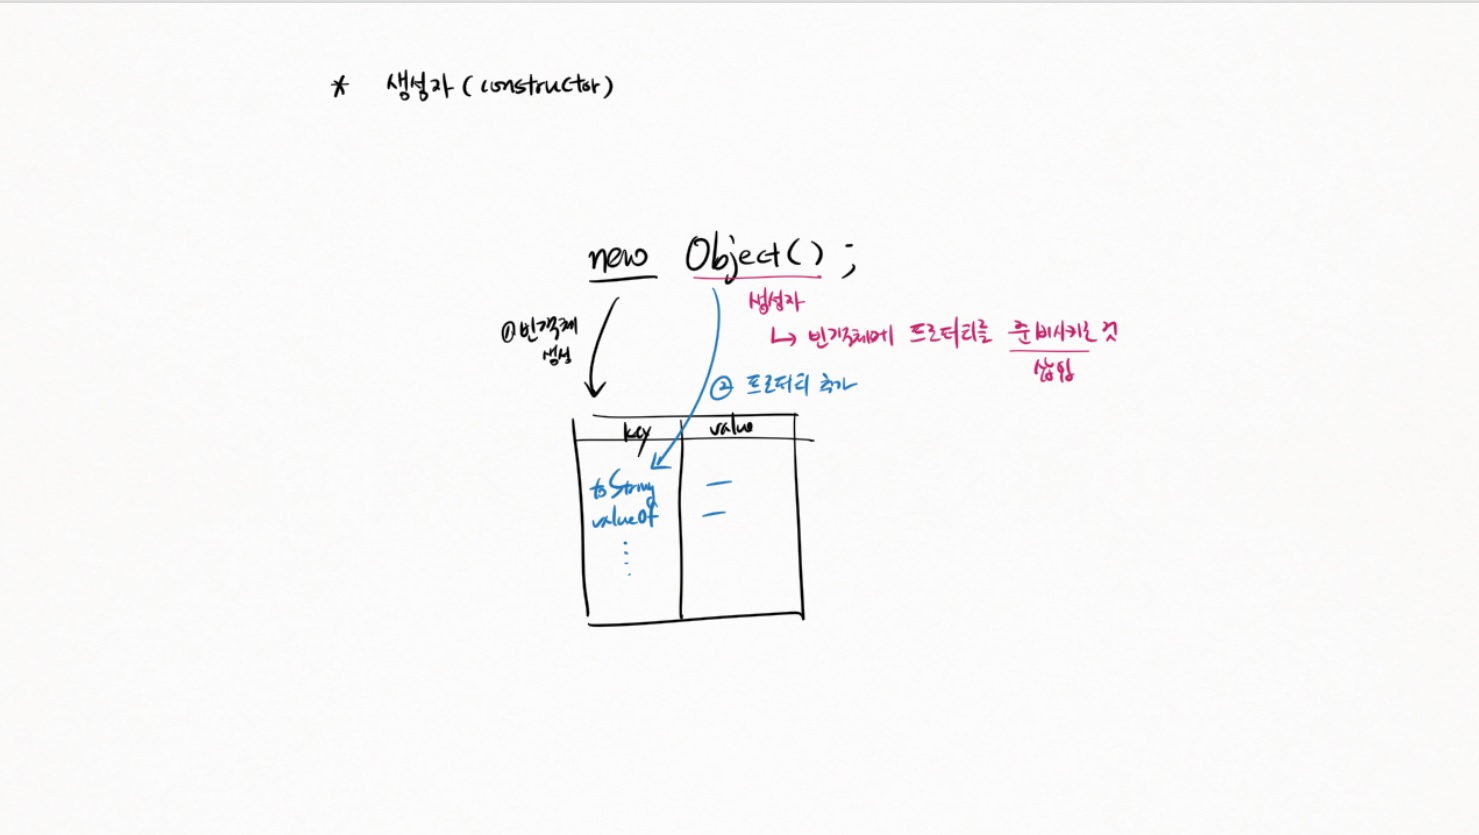 * 생성자 (constructor)
new Object() ;
생성자
① 빈객체
생성
↳ 빈객체에 프로퍼티를 준비시키는 것
삽입
② 프로퍼티 추가
key value
toString —
valueOf —